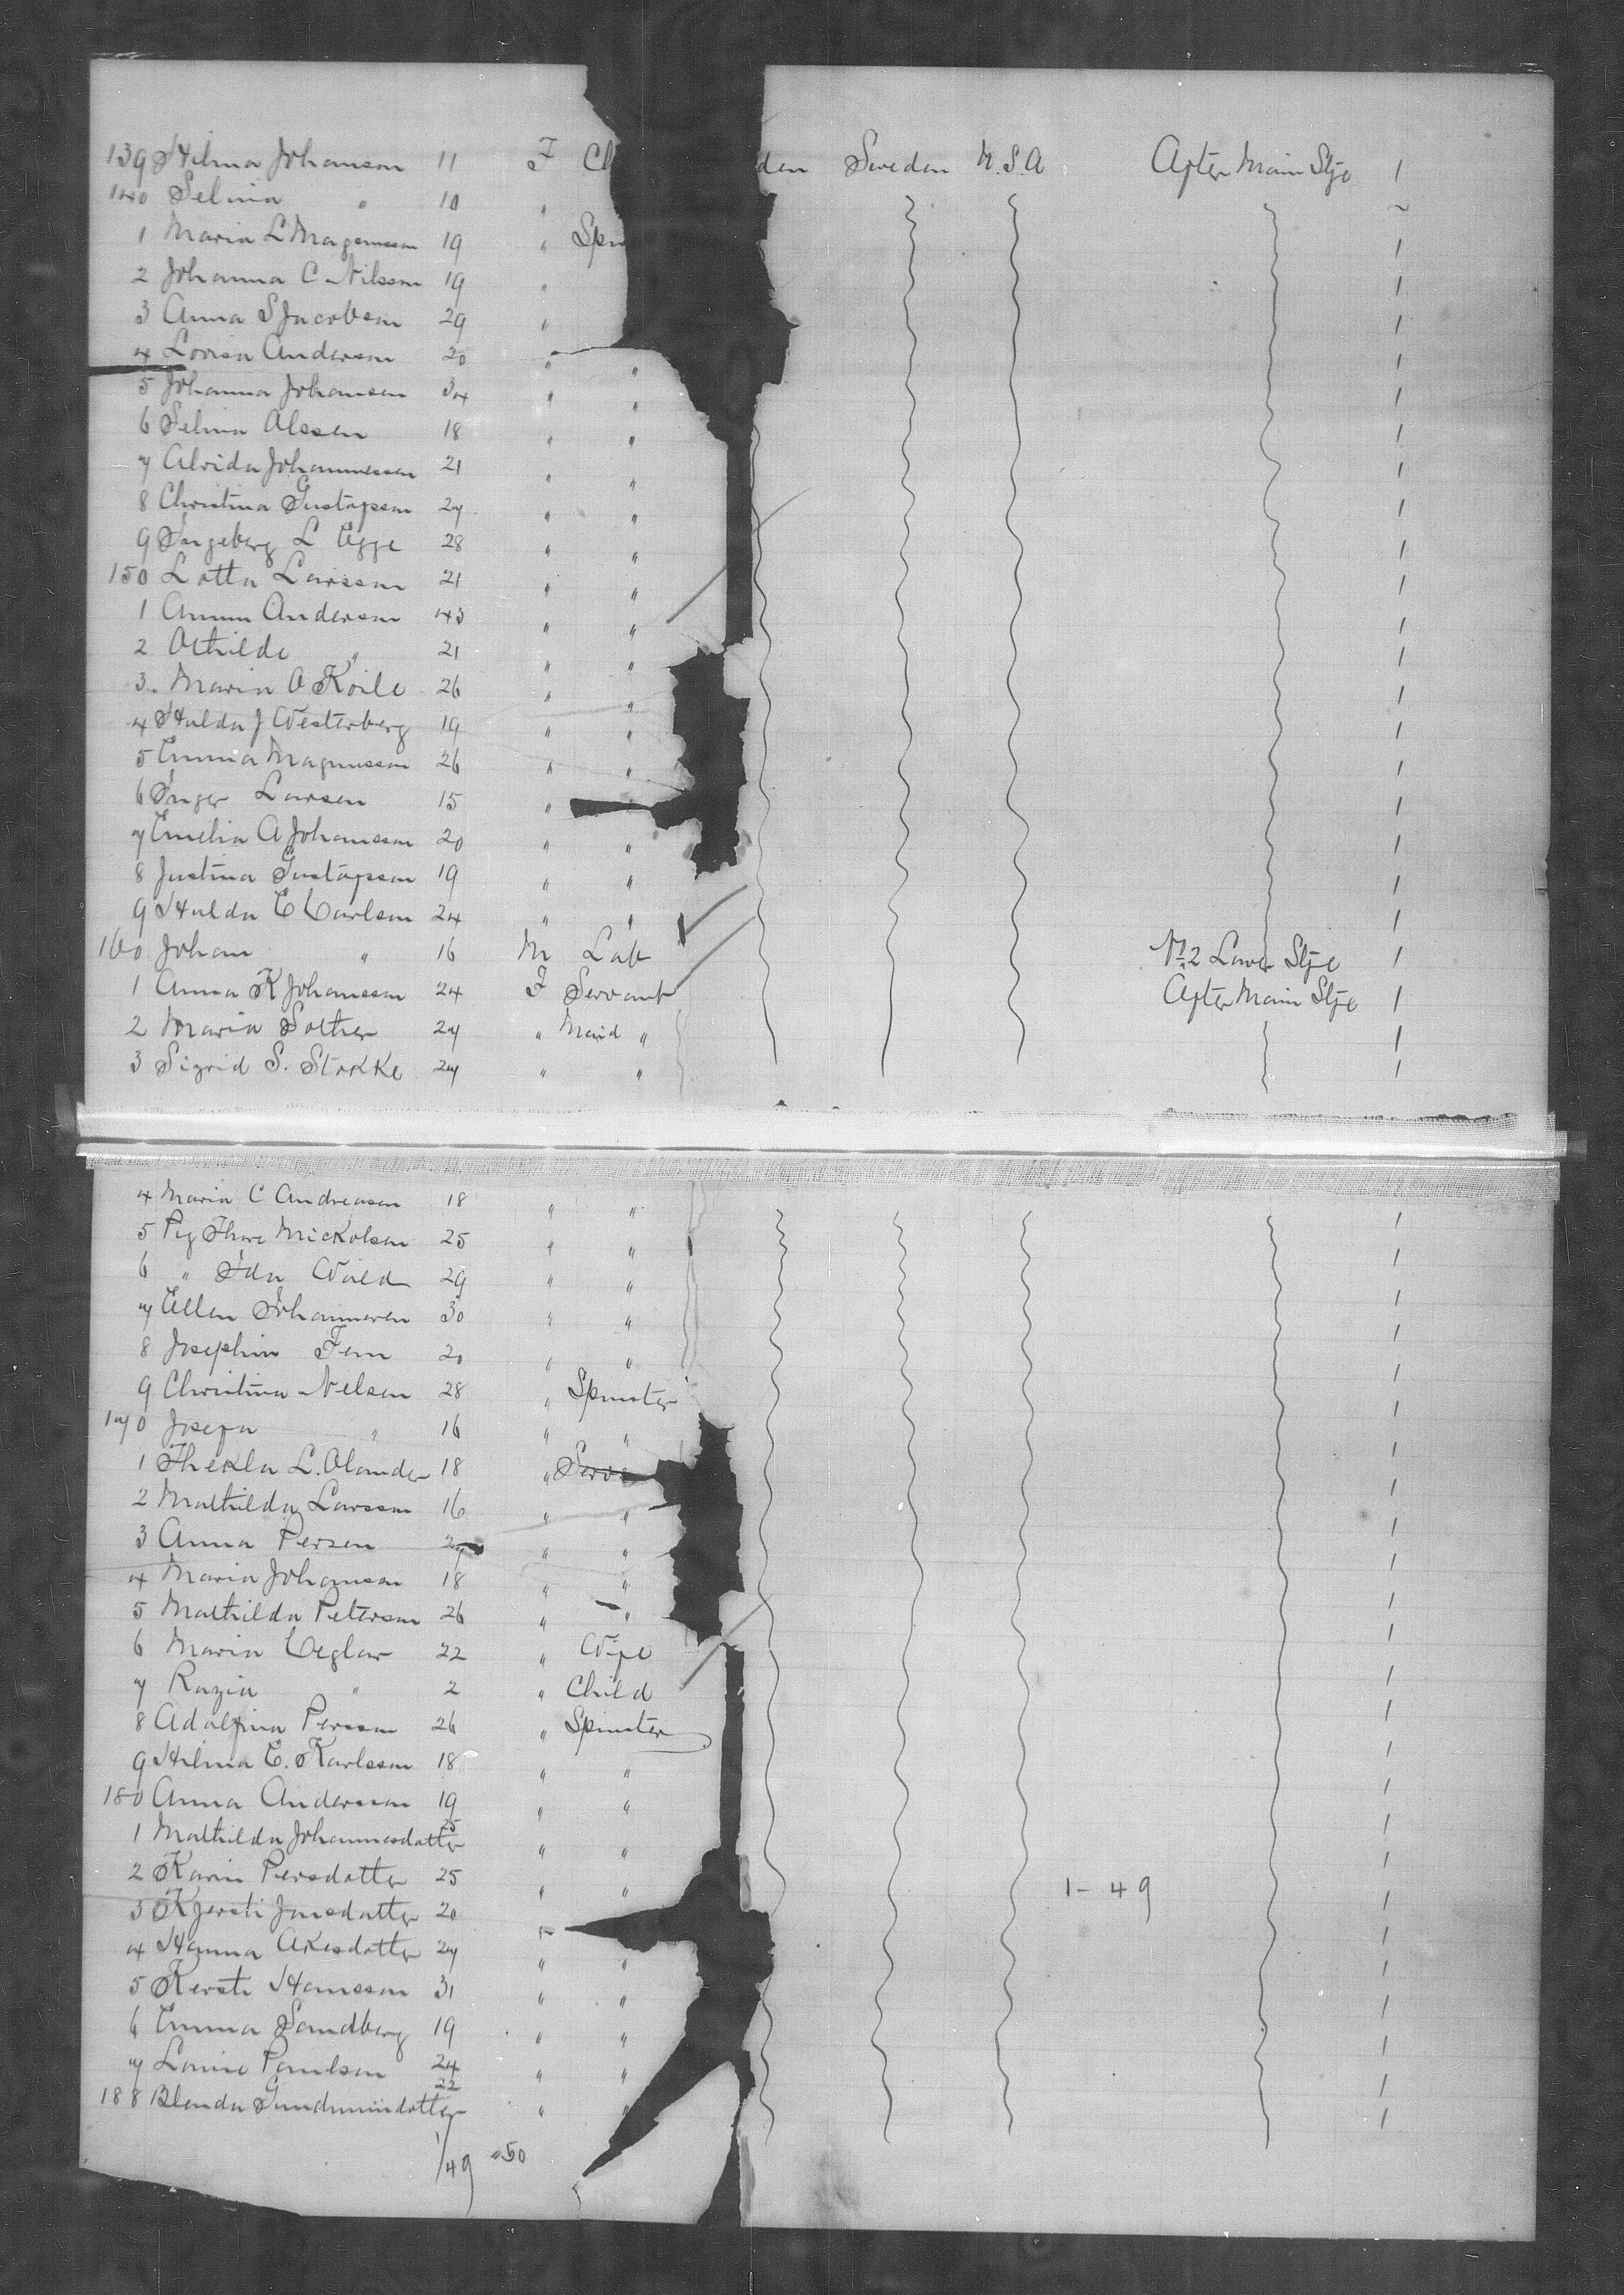 139 Hilma Johanson 11 F Ch den Sweden U.S.A After Main Stge 1
140 Selma " 10 "
1 Maria L Magnusson 19 " Spin 1
2 Johanna C Nilsson 19 " 1
3 Anna S Jacobson 29 " 1
4 Lovisa Anderson 20 " " 1
5 Johanna Johanson 34 " " 1
6 Selma Olssen 18 " " 1
7 Alvida Johannesson 21 " " 1
8 Christina Gustafsson 27 " " 1
9 Ingeborg L Egge 28 " " 1
150 Lotta Larsson 21 " " 1
1 Anna Anderson 43 " " 1
2 Othilde " 21 " " 1
3 Maria O Koile 26 " " 1
4 Hulda J Westerberg 19 " " 1
5 Emma Magnusson 26 " " 1
6 Inger Larsen 15 " 1
7 Emelia A Johansson 20 " " 1
8 Justina Gustafsson 19 " " 1
9 Hulda C Carlson 24 " " 1
160 Johan " 16 M Lab No 2 Lower Stge 1
1 Anna K Johansson 24 F Servant After Main Stge 1
2 Maria Solher 27 " Maid " 1
3 Sigrid S. Stokke 27 " " 1
4 Maria C Andreasen 18 " " 1
5 Thore Mickolsen 25 " " 1
6 " Ida Wold 29 " " 1
7 Ellen Johannesen 30 " " 1
8 Josephin Fem 20 " " 1
9 Christina Nelson 28 " Spinster 1
170 Josefa " 16 " " 1
1 Thekla L. Olander 18 " Serva 1
2 Mathilda Larsson 16 " " 1
3 Anna Persen 27 " " 1
4 Maria Johanson 18 " " 1
5 Mathilda Peterson 26 " " 1
6 Maria Ceglar 22 " Wife 1
7 Razia " 2 " Child 1
8 Adolfina Persson 26 " Spinster 1
9 Hilma C. Karlsson 18 " " 1
180 Anna Andersson 19 " " 1
1 Mathilda Johannesdotter 25 " " 1
2 Karin Persdotter 25 " " 1-49 1
3 Kjersti Jonsdotter 20 " 1
4 Hanna Akesdotter 27 " " 1
5 Kersti Hansson 31 " " 1
6 Emma Sandberg 19 " " 1
7 Louise Paulson 24 " " 1
188 Blenda Gundmundotter 22 " " 1
1/49 = 50